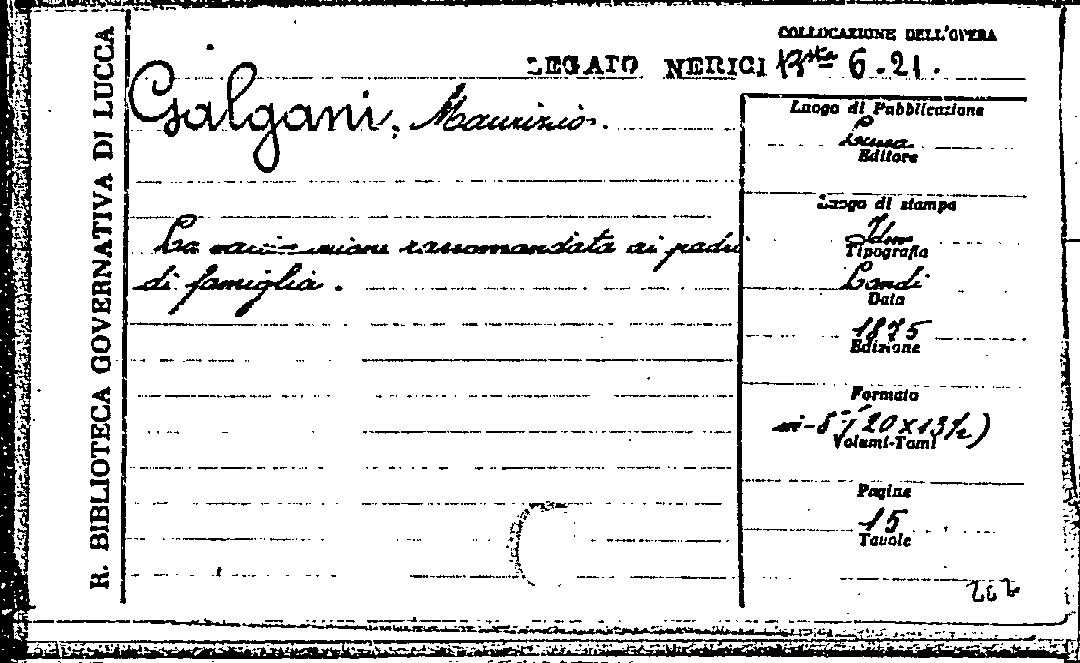 COLLOCAZIONE DELL'OPERA
LEGATO NERICI Bta 6.21.
R. BIBLIOTECA GOVERNATIVA DI LUCCA
Galgani, Maurizio.
La raccomandata ai padri
di famiglia.
Luogo di Pubblicazione
Lucca
Editore
Luogo di stampa
Idem
Tipografia
Landi
Data
1875
Edizione
Formato
in-8° (20x13½)
Volumi-Tomi
Pagine
15
Tavole